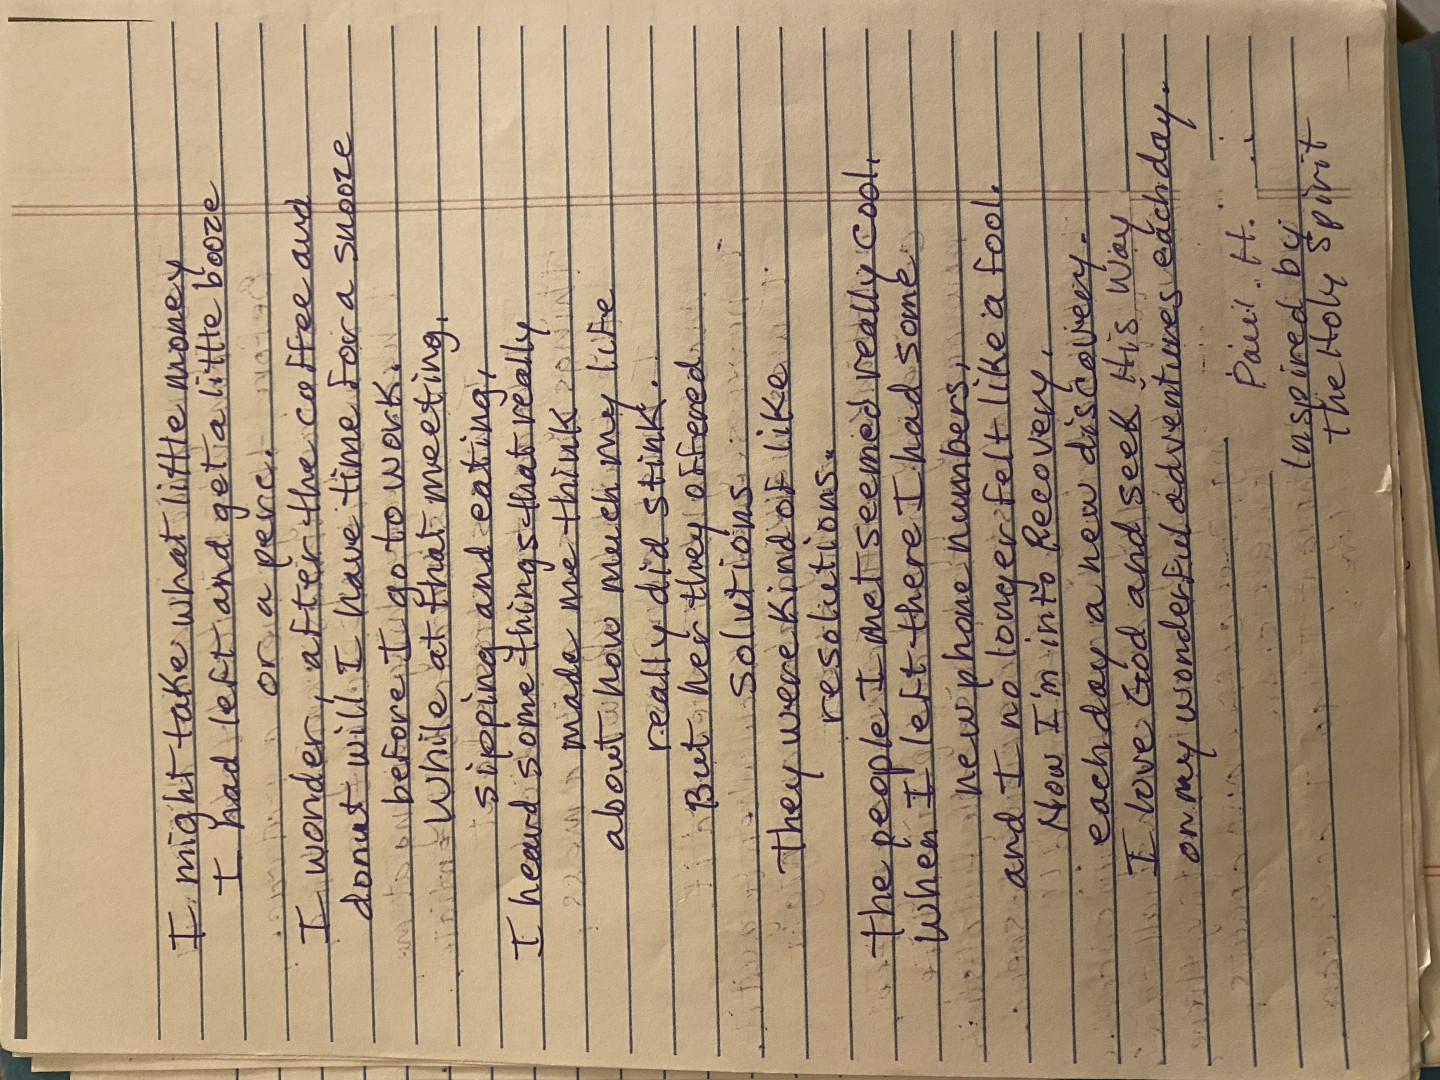 I might take what little money
I had left and get a little booze
or a perc.
I wonder, after the coffee and
donut will I have time for a snooze
before I go to work.
While at that meeting,
sipping and eating,
I heard some things that really
made me think
about how much my life
really did stink.
But her they offered
solutions
They were kind of like
resolutions.
The people I met seemed really cool.
When I left there I had some
new phone numbers,
and I no longer felt like a fool.
Now I'm into Recovery,
each day a new discovery.
I love God and seek His Way
on my wonderful adventures each day.
Paul H.
Inspired by
the Holy Spirit